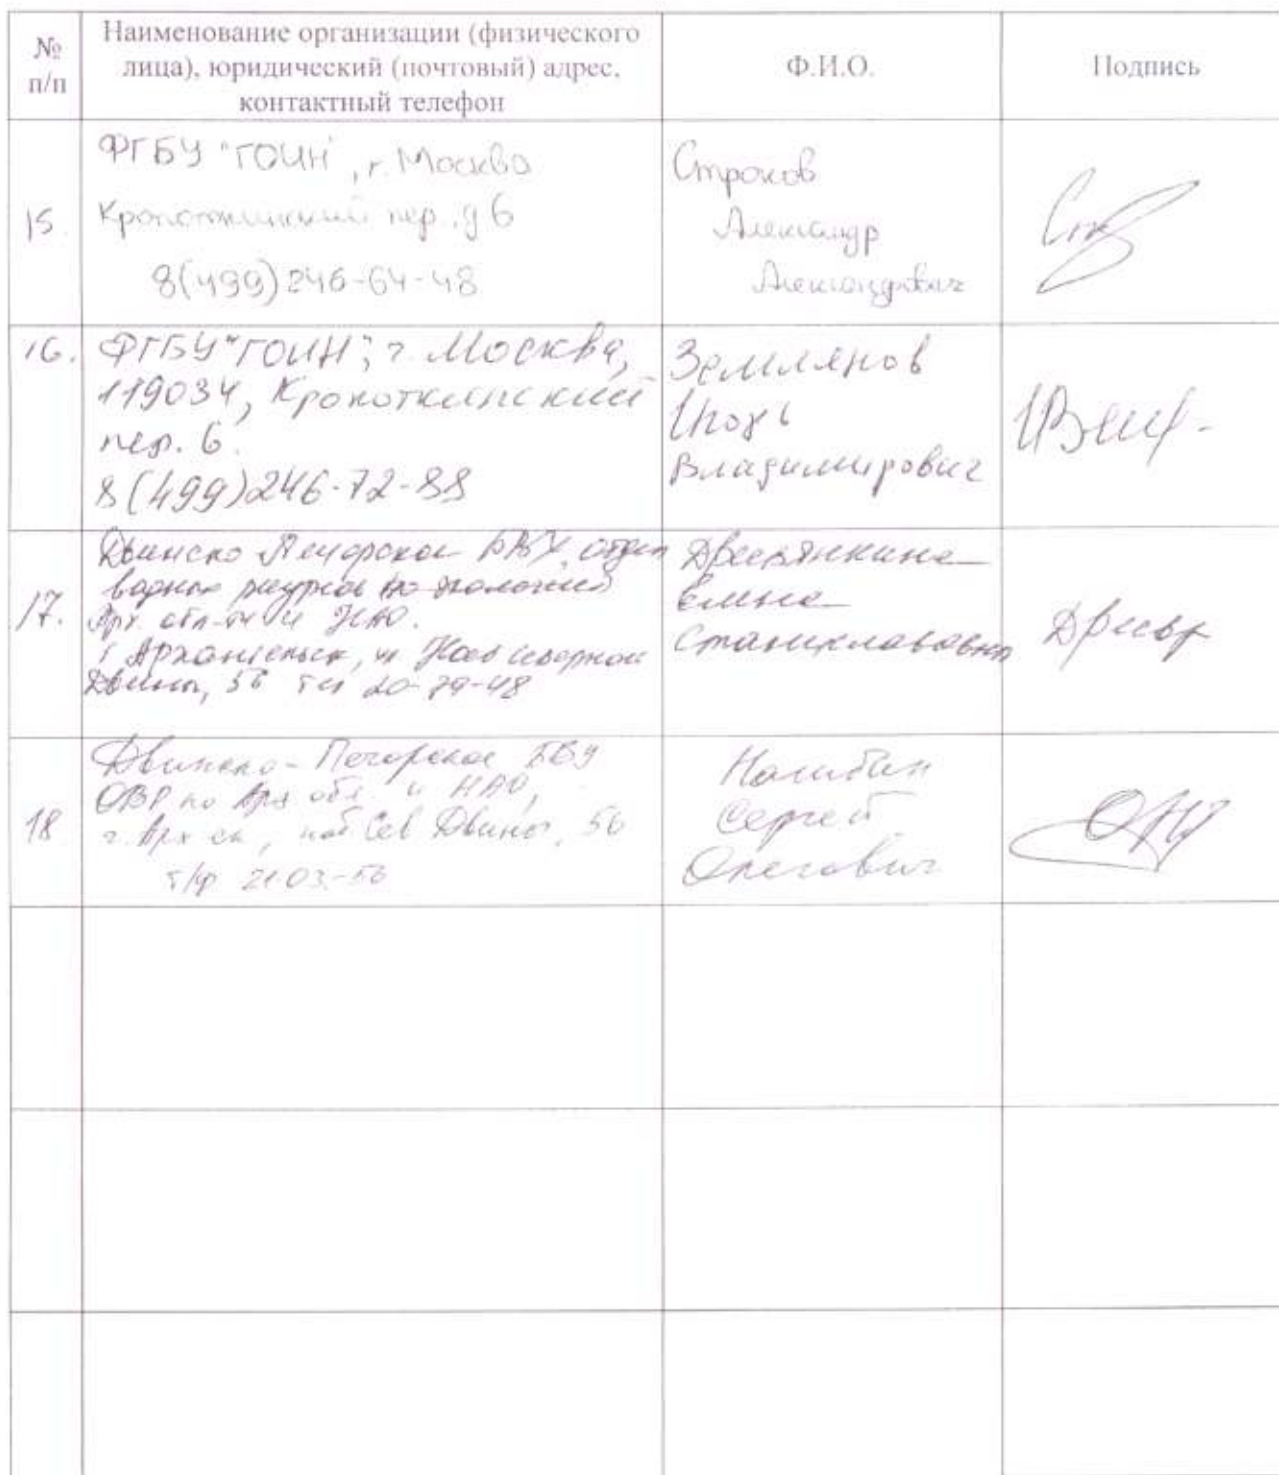 №
п/п
Наименование организации (физического
лица), юридический (почтовый) адрес,
контактный телефон
Ф.И.О.
Подпись
15.
ФГБУ "ГОИН", г. Москва
Кропоткинский пер. д 6
8(499) 246-64-48
Строков
Александр
Александрович
16.
ФГБУ "ГОИН", г. Москва,
119034, Кропоткинский
пер. 6.
8(499)246-72-88
Землянов
Игорь
Владимирович
17.
Двинско Печорское БВУ, отдел
водных ресурсов по
Арх. обл-ти и НАО.
г Архангельск, Наб Северной
Двины, 56 тел 20-79-48
Елена
Станиславовна
18
Двинско-Печорское БВУ
ОВР по Арх обл. и НАО,
г. Арх ск, наб Сев Двины, 56
т/ф 21-03-56
Сергей
Олегович